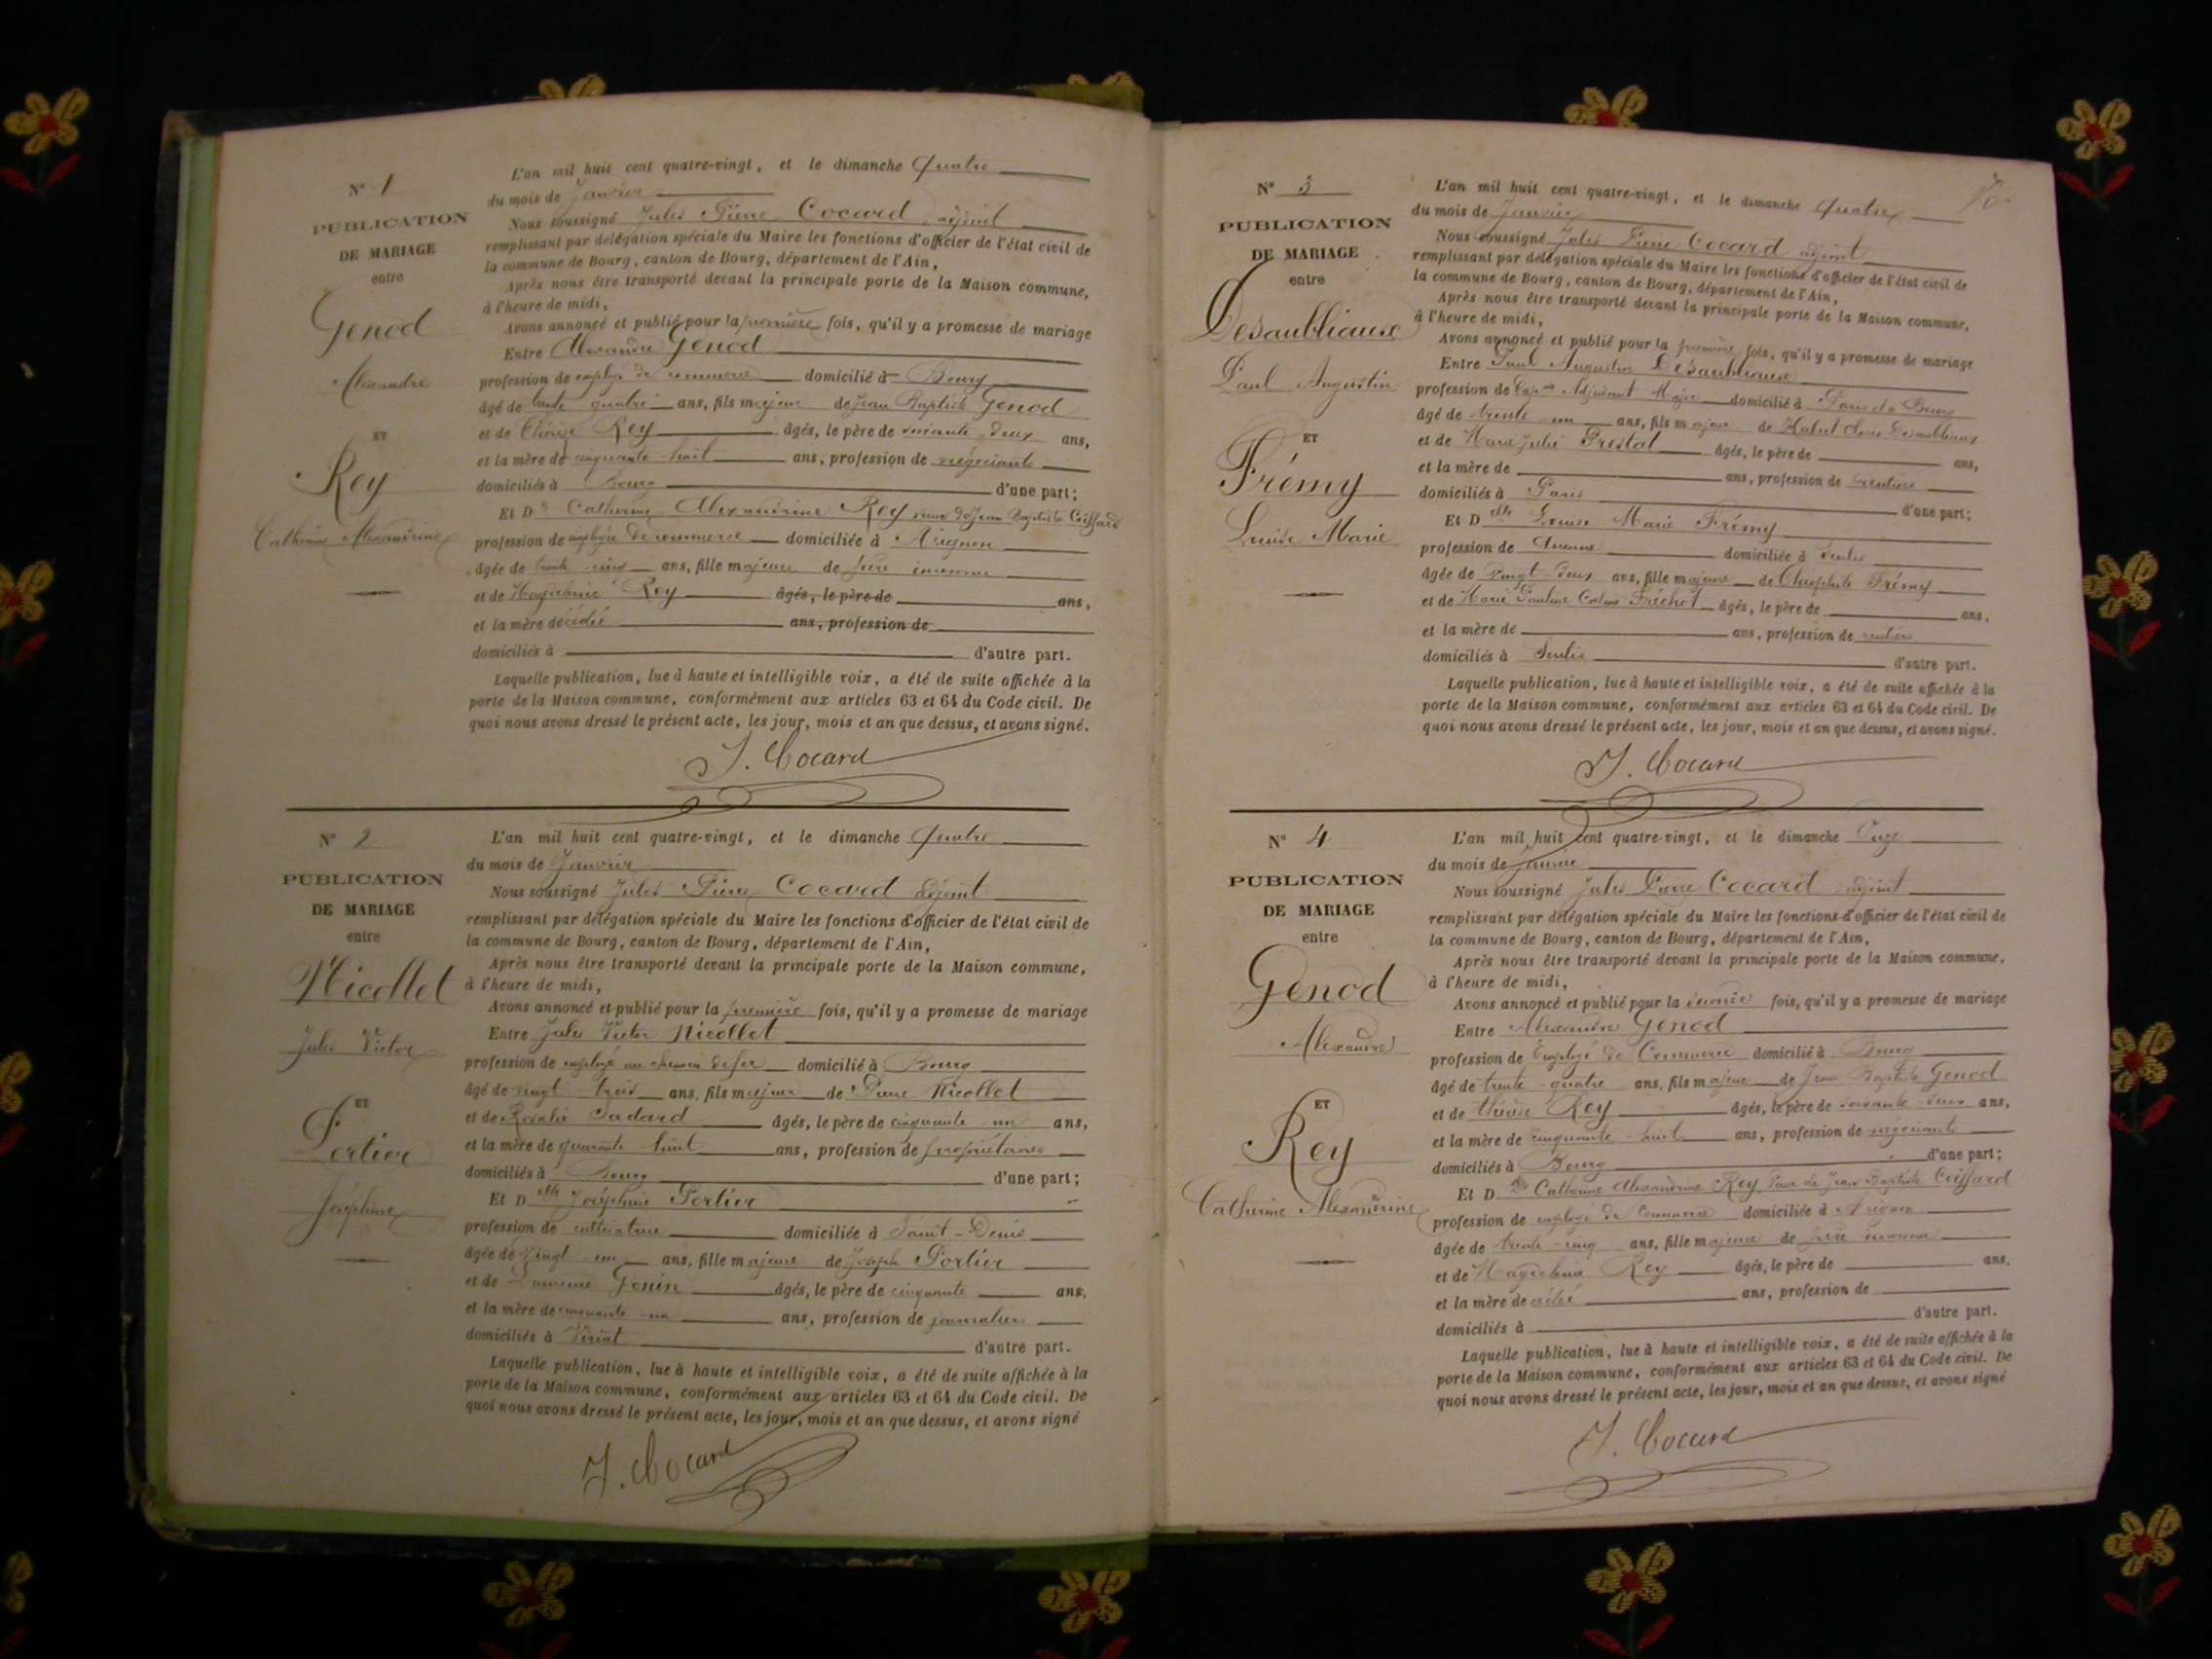 N° 1
PUBLICATION
DE MARIAGE
entre
Genod
Alexandre
ET
Rey
Catherine Alexandrine
L'an mil huit cent quatre-vingt, et le dimanche Quatre
du mois de Janvier
Nous soussigné Jules Pierre Cocard, adjoint
remplissant par délégation spéciale du Maire les fonctions d'officier de l'état civil de
la commune de Bourg, canton de Bourg, département de l'Ain,
Après nous être transporté devant la principale porte de la Maison commune,
à l'heure de midi,
Avons annoncé et publié pour la première fois, qu'il y a promesse de mariage
Entre Alexandre Genod
profession de employé de commerce domicilié à Bourg
âgé de trente quatre ans, fils majeur de Jean Baptiste Genod
et de Thérèse Rey âgés, le père de soixante-deux ans,
et la mère de cinquante-huit ans, profession de négociants
domiciliés à Bourg d'une part;
Et D Catherine Alexandrine Rey veuve de Jean Baptiste Coiffard
profession de employée de commerce domiciliée à Avignon
âgée de trente-cinq ans, fille majeure de père inconnu
et de Magdeleine Rey âgés, le père de ans,
et la mère décédée ans, profession de
domiciliés à d'autre part.
Laquelle publication, lue à haute et intelligible voix, a été de suite affichée à la
porte de la Maison commune, conformément aux articles 63 et 64 du Code civil. De
quoi nous avons dressé le présent acte, les jour, mois et an que dessus, et avons signé.
J. Cocard
N° 2
PUBLICATION
DE MARIAGE
entre
Nicollet
Jules Victor
ET
Portier
Joséphine
L'an mil huit cent quatre-vingt, et le dimanche Quatre
du mois de Janvier
Nous soussigné Jules Pierre Cocard adjoint
remplissant par délégation spéciale du Maire les fonctions d'officier de l'état civil de
la commune de Bourg, canton de Bourg, département de l'Ain,
Après nous être transporté devant la principale porte de la Maison commune,
à l'heure de midi,
Avons annoncé et publié pour la première fois, qu'il y a promesse de mariage
Entre Jules Victor Nicollet
profession de employé au chemin de fer domicilié à Bourg
âgé de vingt trois ans, fils majeur de Pierre Nicollet
et de Rosalie Sadard âgés, le père de cinquante-un ans,
et la mère de quarante-huit ans, profession de propriétaires
domiciliés à Bourg d'une part;
Et D elle Joséphine Portier
profession de cultivatrice domiciliée à Saint-Denis
âgée de vingt-un ans, fille majeure de Joseph Portier
et de Laurence Gonin âgés, le père de cinquante ans,
et la mère de cinquante-un ans, profession de journaliers
domiciliés à Viriat d'autre part.
Laquelle publication, lue à haute et intelligible voix, a été de suite affichée à la
porte de la Maison commune, conformément aux articles 63 et 64 du Code civil. De
quoi nous avons dressé le présent acte, les jour, mois et an que dessus, et avons signé
J. Cocard
N° 3
PUBLICATION
DE MARIAGE
entre
Desaubliaux
Paul Augustin
ET
Frémy
Louise Marie
L'an mil huit cent quatre-vingt, et le dimanche Quatre
du mois de Janvier
Nous soussigné Jules Pierre Cocard adjoint
remplissant par délégation spéciale du Maire les fonctions d'officier de l'état civil de
la commune de Bourg, canton de Bourg, département de l'Ain,
Après nous être transporté devant la principale porte de la Maison commune,
à l'heure de midi,
Avons annoncé et publié pour la première fois, qu'il y a promesse de mariage
Entre Paul Augustin Desaubliaux
profession de Adjudant Major domicilié à Bourg
âgé de trente-un ans, fils majeur de Desaubliaux
et de Marie Julie Prestat âgés, le père de ans,
et la mère de ans, profession de rentiers
domiciliés à Paris d'une part;
Et D elle Louise Marie Frémy
profession de Aucune domiciliée à Senlis
âgée de vingt-deux ans, fille majeure de Théophile Frémy
et de Marie Pauline Fréchot âgés, le père de ans,
et la mère de ans, profession de rentiers
domiciliés à Senlis d'autre part.
Laquelle publication, lue à haute et intelligible voix, a été de suite affichée à la
porte de la Maison commune, conformément aux articles 63 et 64 du Code civil. De
quoi nous avons dressé le présent acte, les jour, mois et an que dessus, et avons signé.
J. Cocard
N° 4
PUBLICATION
DE MARIAGE
entre
Genod
Alexandre
ET
Rey
Catherine Alexandrine
L'an mil huit cent quatre-vingt, et le dimanche Onze
du mois de Janvier
Nous soussigné Jules Pierre Cocard adjoint
remplissant par délégation spéciale du Maire les fonctions d'officier de l'état civil de
la commune de Bourg, canton de Bourg, département de l'Ain,
Après nous être transporté devant la principale porte de la Maison commune,
à l'heure de midi,
Avons annoncé et publié pour la seconde fois, qu'il y a promesse de mariage
Entre Alexandre Genod
profession de Employé de Commerce domicilié à Bourg
âgé de trente-quatre ans, fils majeur de Jean Baptiste Genod
et de thérèse Rey âgés, le père de soixante-deux ans,
et la mère de cinquante-huit ans, profession de négociants
domiciliés à Bourg d'une part;
Et D Catherine Alexandrine Rey veuve de Jean Baptiste Coiffard
profession de employé de Commerce domiciliée à Avignon
âgée de trente-cinq ans, fille majeure de père inconnu
et de Magdeleine Rey âgés, le père de ans,
et la mère de ans, profession de
domiciliés à d'autre part.
Laquelle publication, lue à haute et intelligible voix, a été de suite affichée à la
porte de la Maison commune, conformément aux articles 63 et 64 du Code civil. De
quoi nous avons dressé le présent acte, les jour, mois et an que dessus, et avons signé
J. Cocard